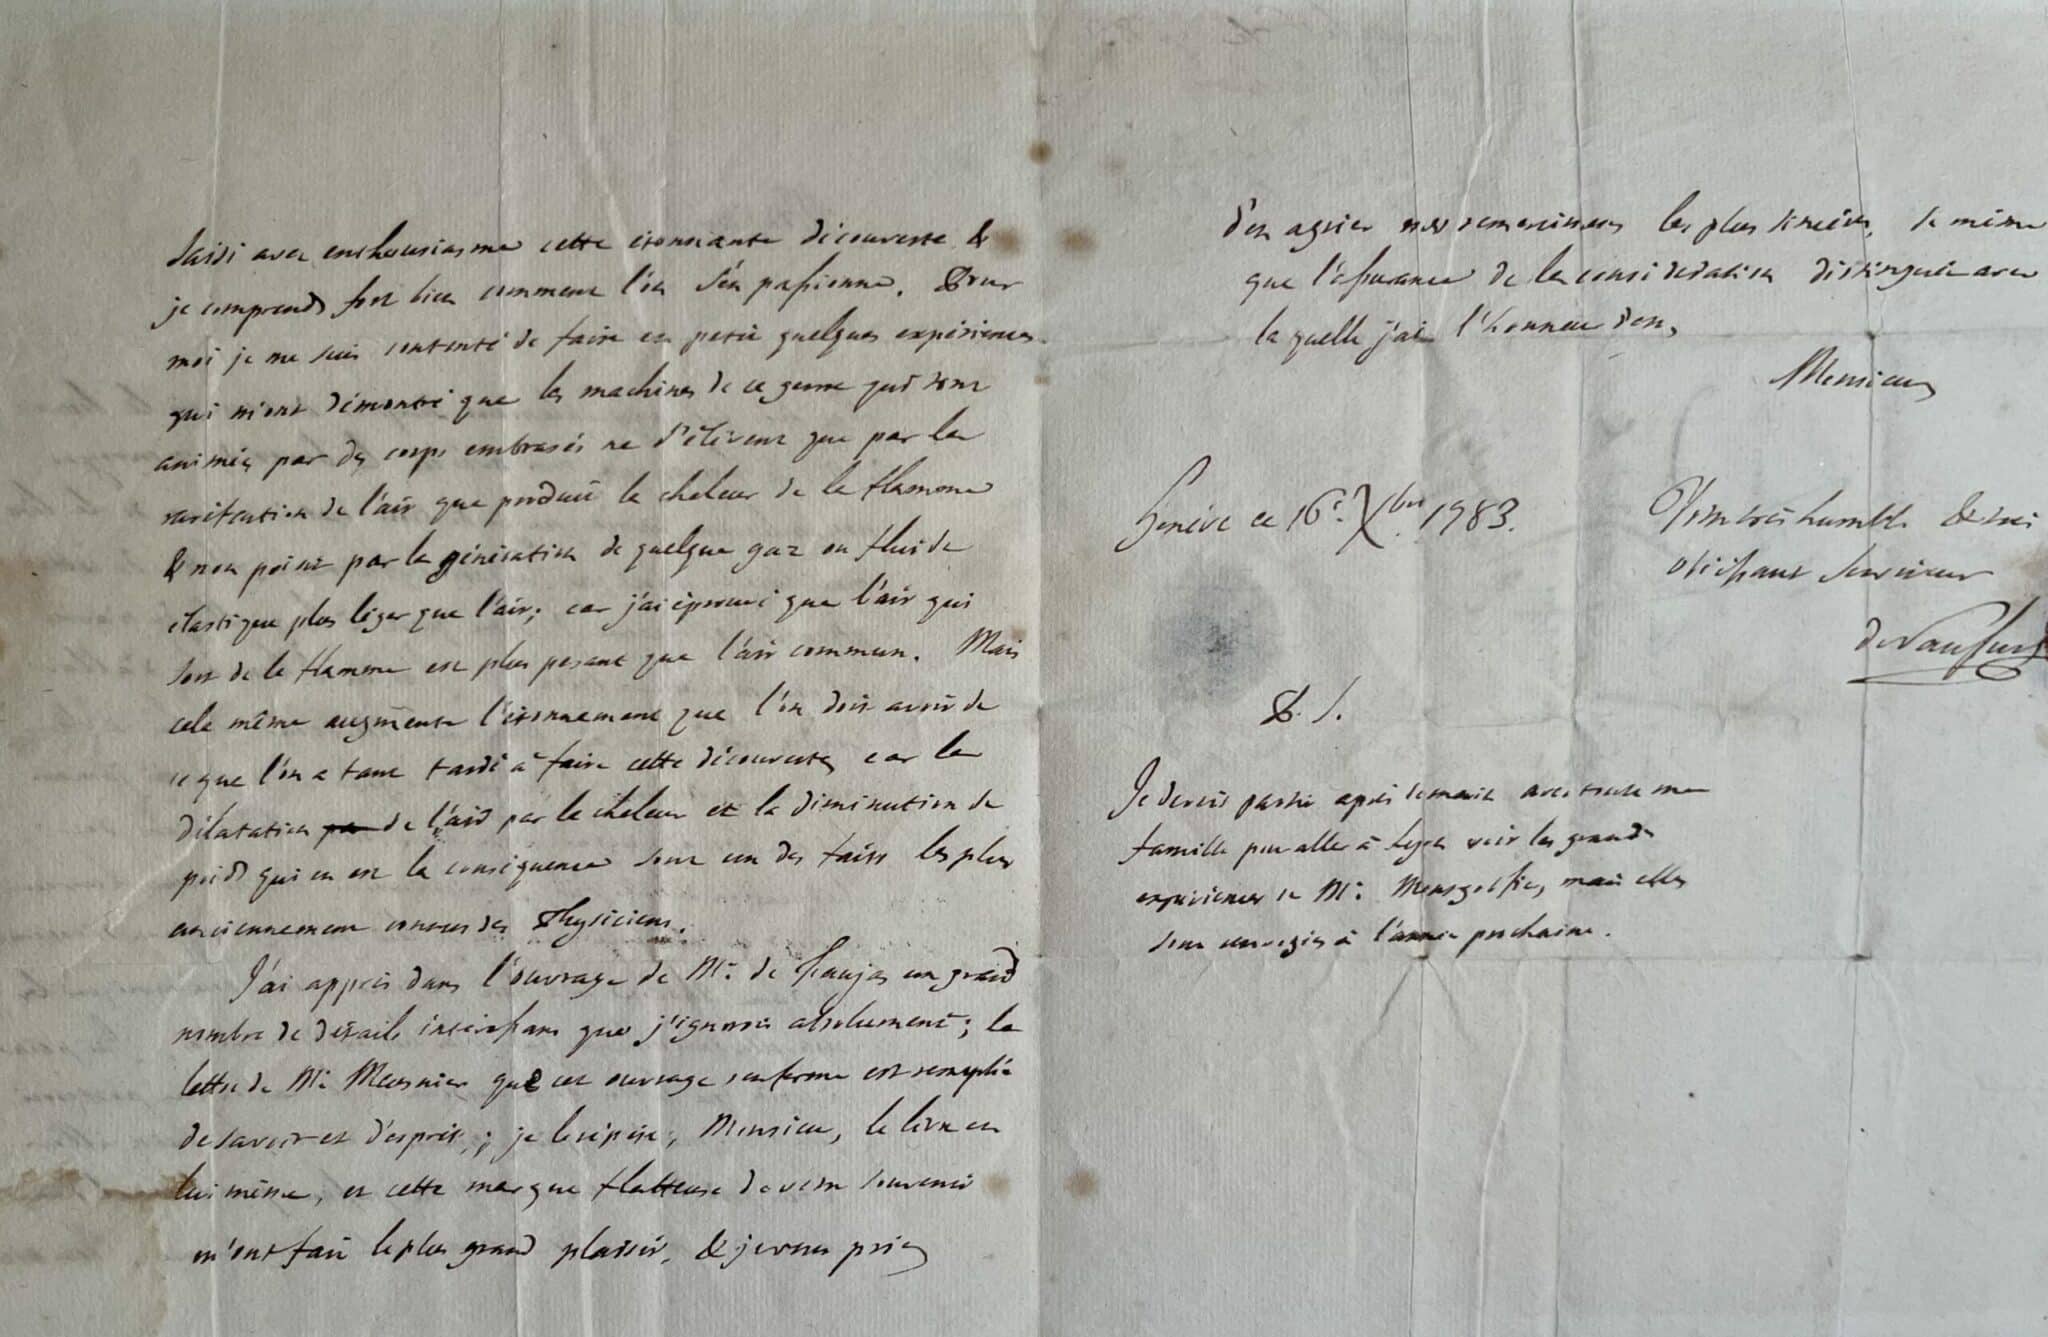 saisi avec enthousiasme cette étonnante découverte &
je comprends fort bien comment l'on s'en passionne. Pour
moi je me suis contenté de faire en petit quelques expériences
qui m'ont démontré que les machines de ce genre qui sont
animées par des corps embrasés ne s'élèvent que par la
raréfaction de l'air que produit la chaleur de la flamme
& non point par la génération de quelque gaz ou fluide
élastique plus léger que l'air; car j'ai éprouvé que l'air qui
sort de la flamme est plus pesant que l'air commun. Mais
cela même augmente l'étonnement que l'on doit avoir de
ce que l'on a tant tardé à faire cette découverte, car la
dilatation de l'air par la chaleur et la diminution de
poids qui en est la conséquence sont un des faits les plus
anciennement connus des Physiciens.
J'ai appris dans l'ouvrage de Mr. de Faujas un grand
nombre de détails intéressans que j'ignorois absolument; la
lettre de Mr. Meusnier que cet ouvrage renferme est remplie
de savoir et d'esprit; je le répète, Monsieur, le livre en
lui même, et cette marque flatteuse de votre souvenir
m'ont fait le plus grand plaisir, & je vous prie
d'en agréer mes remerciemens les plus sincères, de même
que l'assurance de la considération distinguée avec
la quelle j'ai l'honneur d'être,
Monsieur
Genève ce 16e. Xbre 1783.
Votre très humble & très
obéissant serviteur
de Saussure
P. S.
Je devois partir après demain avec toute ma
famille pour aller à Lyon voir les grandes
expériences de Mr. Montgolfier, mais elles
sont renvoyées à l'année prochaine.